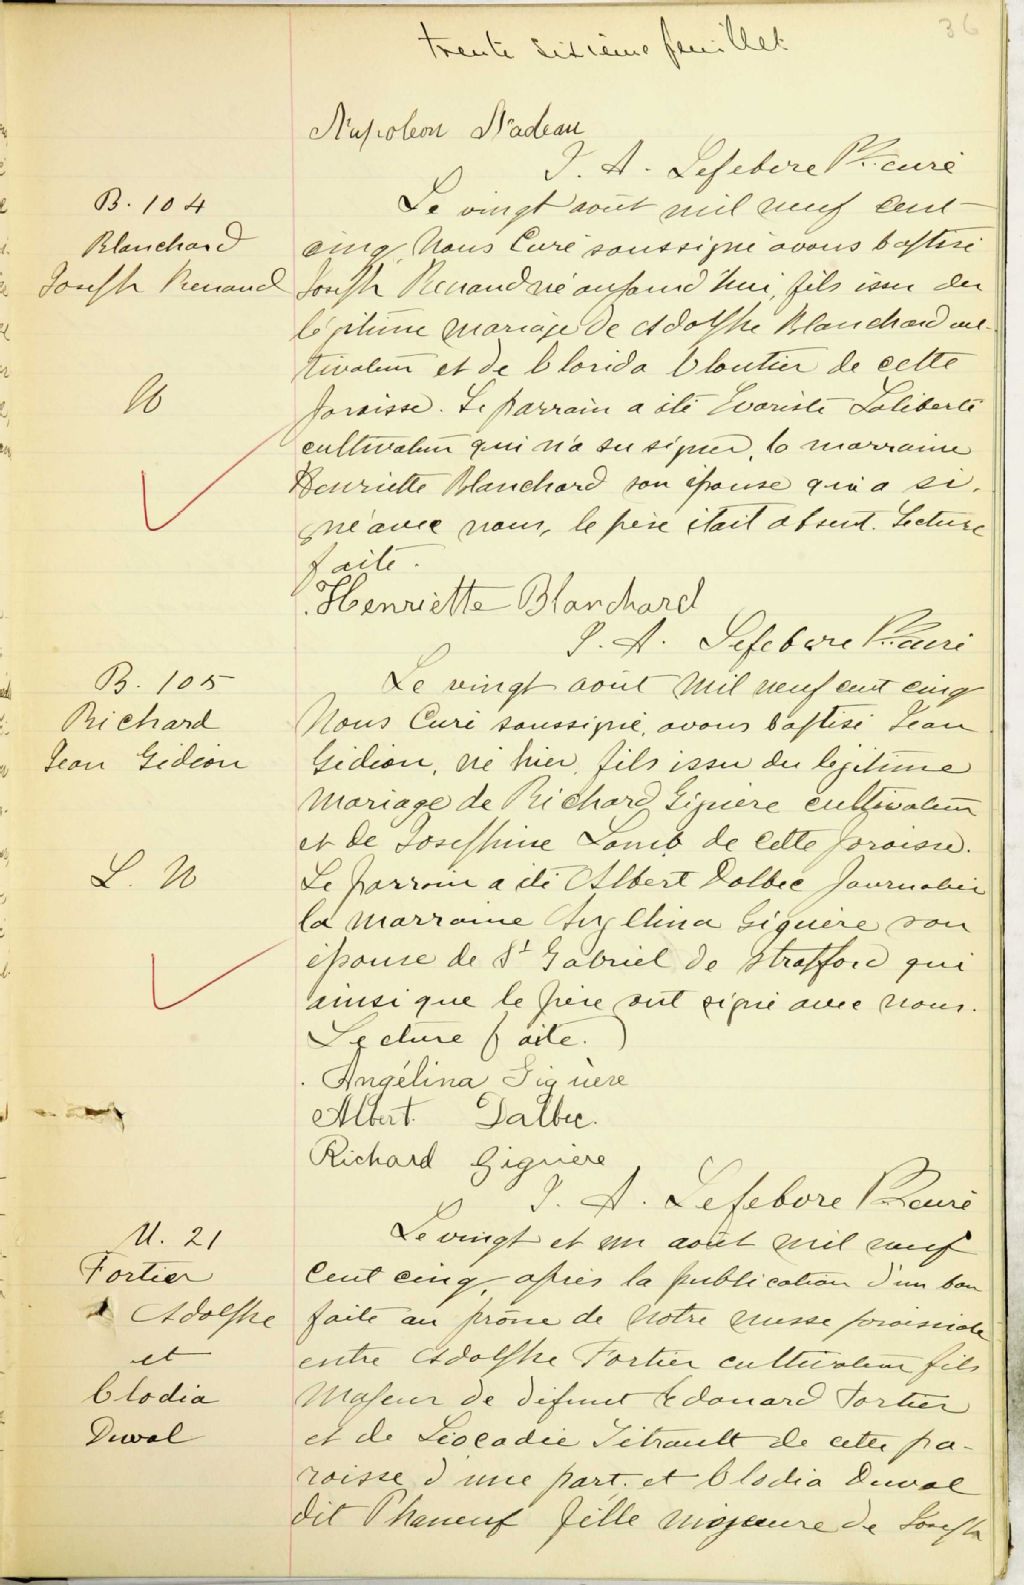 36
trente sixième feuillet
Napoleon Nadeau
J. A. Lefebvre Ptre curé
B. 104
Blanchard
Joseph Renaud
N
Le vingt août mil neuf cent
cinq, Nous Curé soussigné avons baptisé
Joseph Renaud né aujourd'hui, fils issu du
légitime mariage de Adolphe Blanchard cul-
tivateur et de Clorida Cloutier de cette
paroisse. Le parrain a été Evariste Laliberté
cultivateur qui n'a su signer, la marraine
Henriette Blanchard son épouse qui a si-
gné avec nous, le père était absent. Lecture
faite.
Henriette Blanchard
J. A. Lefebvre Ptre curé
B. 105
Richard
Jean Gideon
L. N
Le vingt août mil neuf cent cinq
Nous Curé soussigné, avons baptisé Jean
Gideon, né hier, fils issu du légitime
mariage de Richard Giguère cultivateur
et de Josephine Lamb de cette paroisse.
Le parrain a été Albert Dalbec journalier
la marraine Angelina Giguère son
épouse de St Gabriel de Stratford qui
ainsi que le père ont signé avec nous.
Lecture faite.
Angélina Giguère
Albert Dalbec.
Richard Giguère
J. A. Lefebvre Ptre curé
M. 21
Fortier
Adolphe
et
Clodia
Duval
Le vingt et un août mil neuf
cent cinq, après la publication d'un ban
faite au prône de notre messe paroissiale
entre Adolphe Fortier cultivateur fils
majeur de défunt Edouard Fortier
et de Léocadie Tétrault de cette pa-
roisse d'une part. et Clodia Duval
dit Phaneuf fille majeure de Joseph